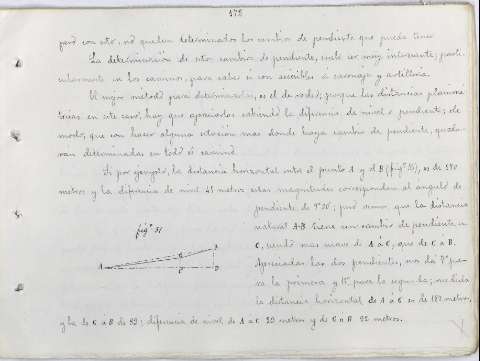 178
pero con esto, no quedan determinados los cambios de pendiente que pueda tener
La determinación de estos cambios de pendiente, suele ser muy interesante; parti-
cularmente en los caminos, para saber si son accesibles á carruajes y artillería.
El mejor método para determinarlos, es el de rodeo; porque las distancias planimé-
tricas en este caso, hay que apreciarlas sabiendo la diferencia de nivel y pendiente; de
modo, que con hacer alguna estación mas donde haya cambio de pendiente, queda-
ran determinadas en todo el camino.
Si por ejemplo, la distancia horizontal entre el punto A y el B (figª 51), es de
metros y la diferencia de nivel 45 metros estas magnitudes corresponden al ángulo de
pendiente de pero vemos que la distancia
natural A-B tiene un cambio de pendiente en
C, siendo mas suave de A á C, que de C á B.
Apreciadas las dos pendientes, nos dá 7° pa-
ra la primera y para la segunda; medida
la distancia horizontal de A á C es de 182 metros,
y la de C á B de diferencia de nivel de A á C 23 metros y de C á B 22 metros.
figª 51
A
B
C